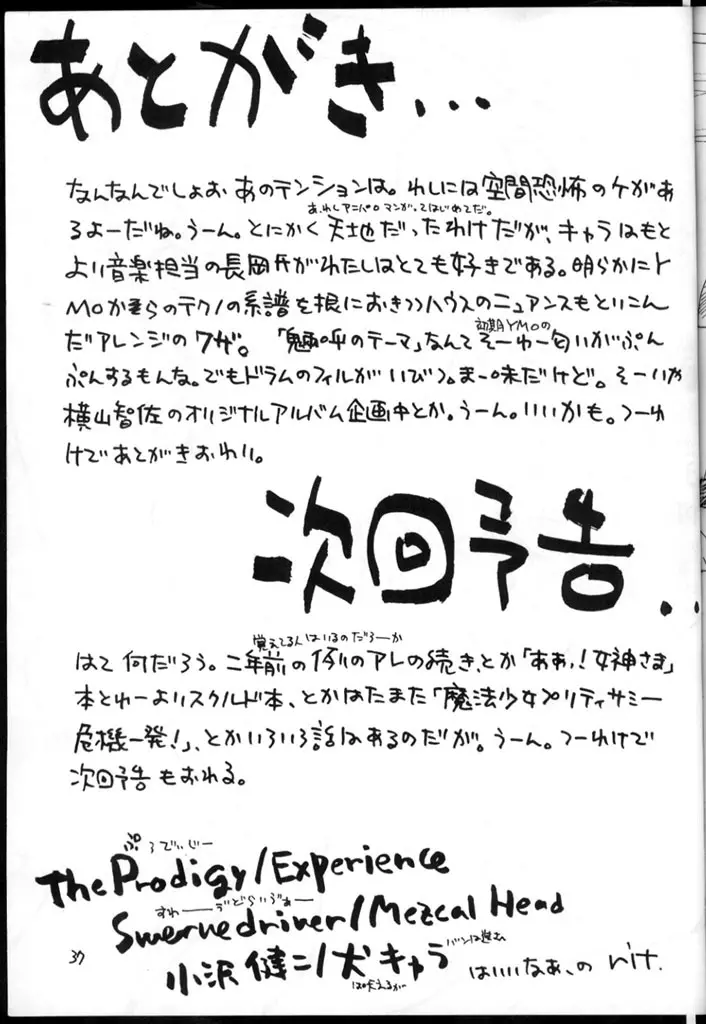 あとがき...
なんなんでしょお あのテンションは。わしには空間恐怖のケがあ
あ、わしアニパロマンガってはじめてだ。
るよーだね。うーん。とにかく天地だったわけだが、キャラはもと
より音楽担当の長岡氏がわたしはとても好きである。明らかにY
MOからのテクノの系譜を根におきつつハウスのニュアンスもとりこん
だアレンジのワザ。「魎呼のテーマ」なんてそーゆー匂いがぷん
初期YMOの
ぷんするもんな。でもドラムのフィルがいびつ。まー味だけど。そーいや
横山智佐のオリジナルアルバム企画中とか。うーん。いいかも。つーわ
けであとがきおわり。
次回予告..
覚えてる人はいるのだろーか
はて何だろう。二年前の例のアレの続き、とか「ああっ!女神さま」
本とゆーよりスクルド本、とかはたまた「魔法少女プリティサミー
危機一発!」、とかいろいろ話はあるのだが。うーん。つーわけで
次回予告もおわる。
ぷろでぃじー
The Prodigy/Experience
すわーヴどらいヴぁー
Swervedriver/Mezcal Head
小沢健二/犬キャラ
はいいなあ、の
は吠えるが
バンは進む
37